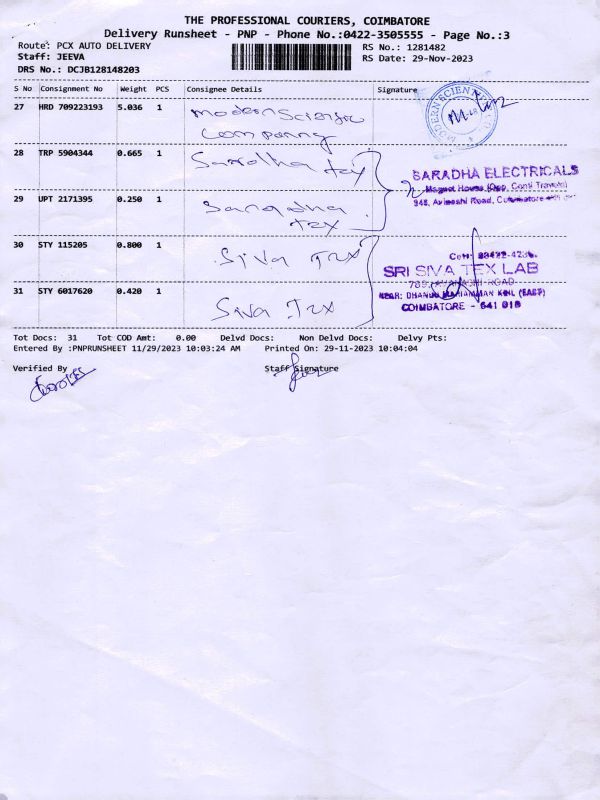 THE PROFESSIONAL COURIERS, COIMBATORE
Delivery Runsheet - PNP - Phone No.:0422-3505555 - Page No.:3
Route: PCX AUTO DELIVERY
RS No.: 1281482
Staff: JEEVA
RS Date: 29-Nov-2023
DRS No.: DCJB128148203
S No Consignment No Weight PCS Consignee Details Signature
27 HRD 709223193 5.036 1 modern Scientific
Company
MODERN SCIENTI
28 TRP 5904344 0.665 1 Saradha tex
SARADHA ELECTRICALS
Magnet House (Opp. Conti Travels)
29 UPT 2171395 0.250 1 Saradha
948, Avinashi Road, Coimbatore
tex
30 STY 115205 0.800 1 Siva Tex
Cell:
SRI SIVA TEX LAB
ROAD
31 STY 6017620 0.420 1 Siva Tex
NEAR: DHANDU MARIAMMAN KOIL (EAST)
COIMBATORE - 641 018
Tot Docs: 31 Tot COD Amt: 0.00 Delvd Docs: Non Delvd Docs: Delvy Pts:
Entered By :PNPRUNSHEET 11/29/2023 10:03:24 AM Printed On: 29-11-2023 10:04:04
Verified By Staff Signature